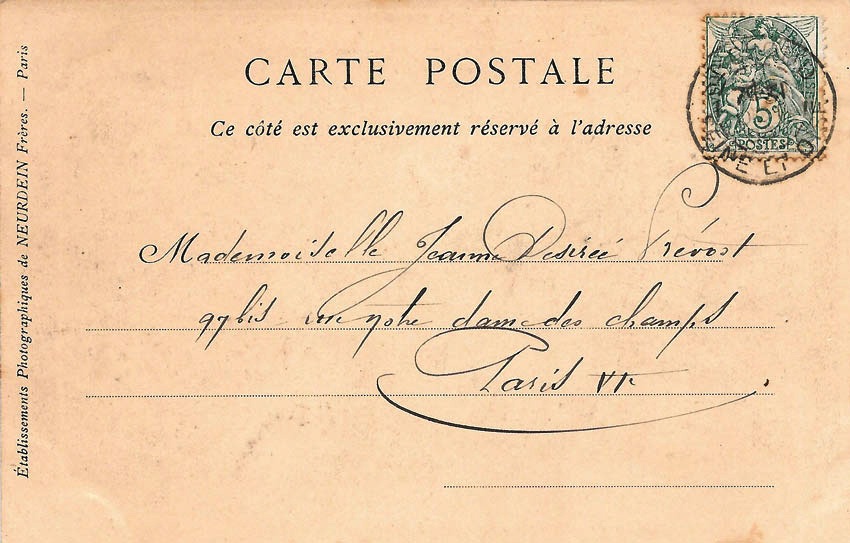 CARTE POSTALE
Ce côté est exclusivement réservé à l'adresse
5c
POSTES
SEINE ET O
Mademoiselle Jeanne Desirée Prévost
97 bis rue notre dame des champs
Paris VIe
Établissements Photographiques de NEURDEIN Frères. — Paris